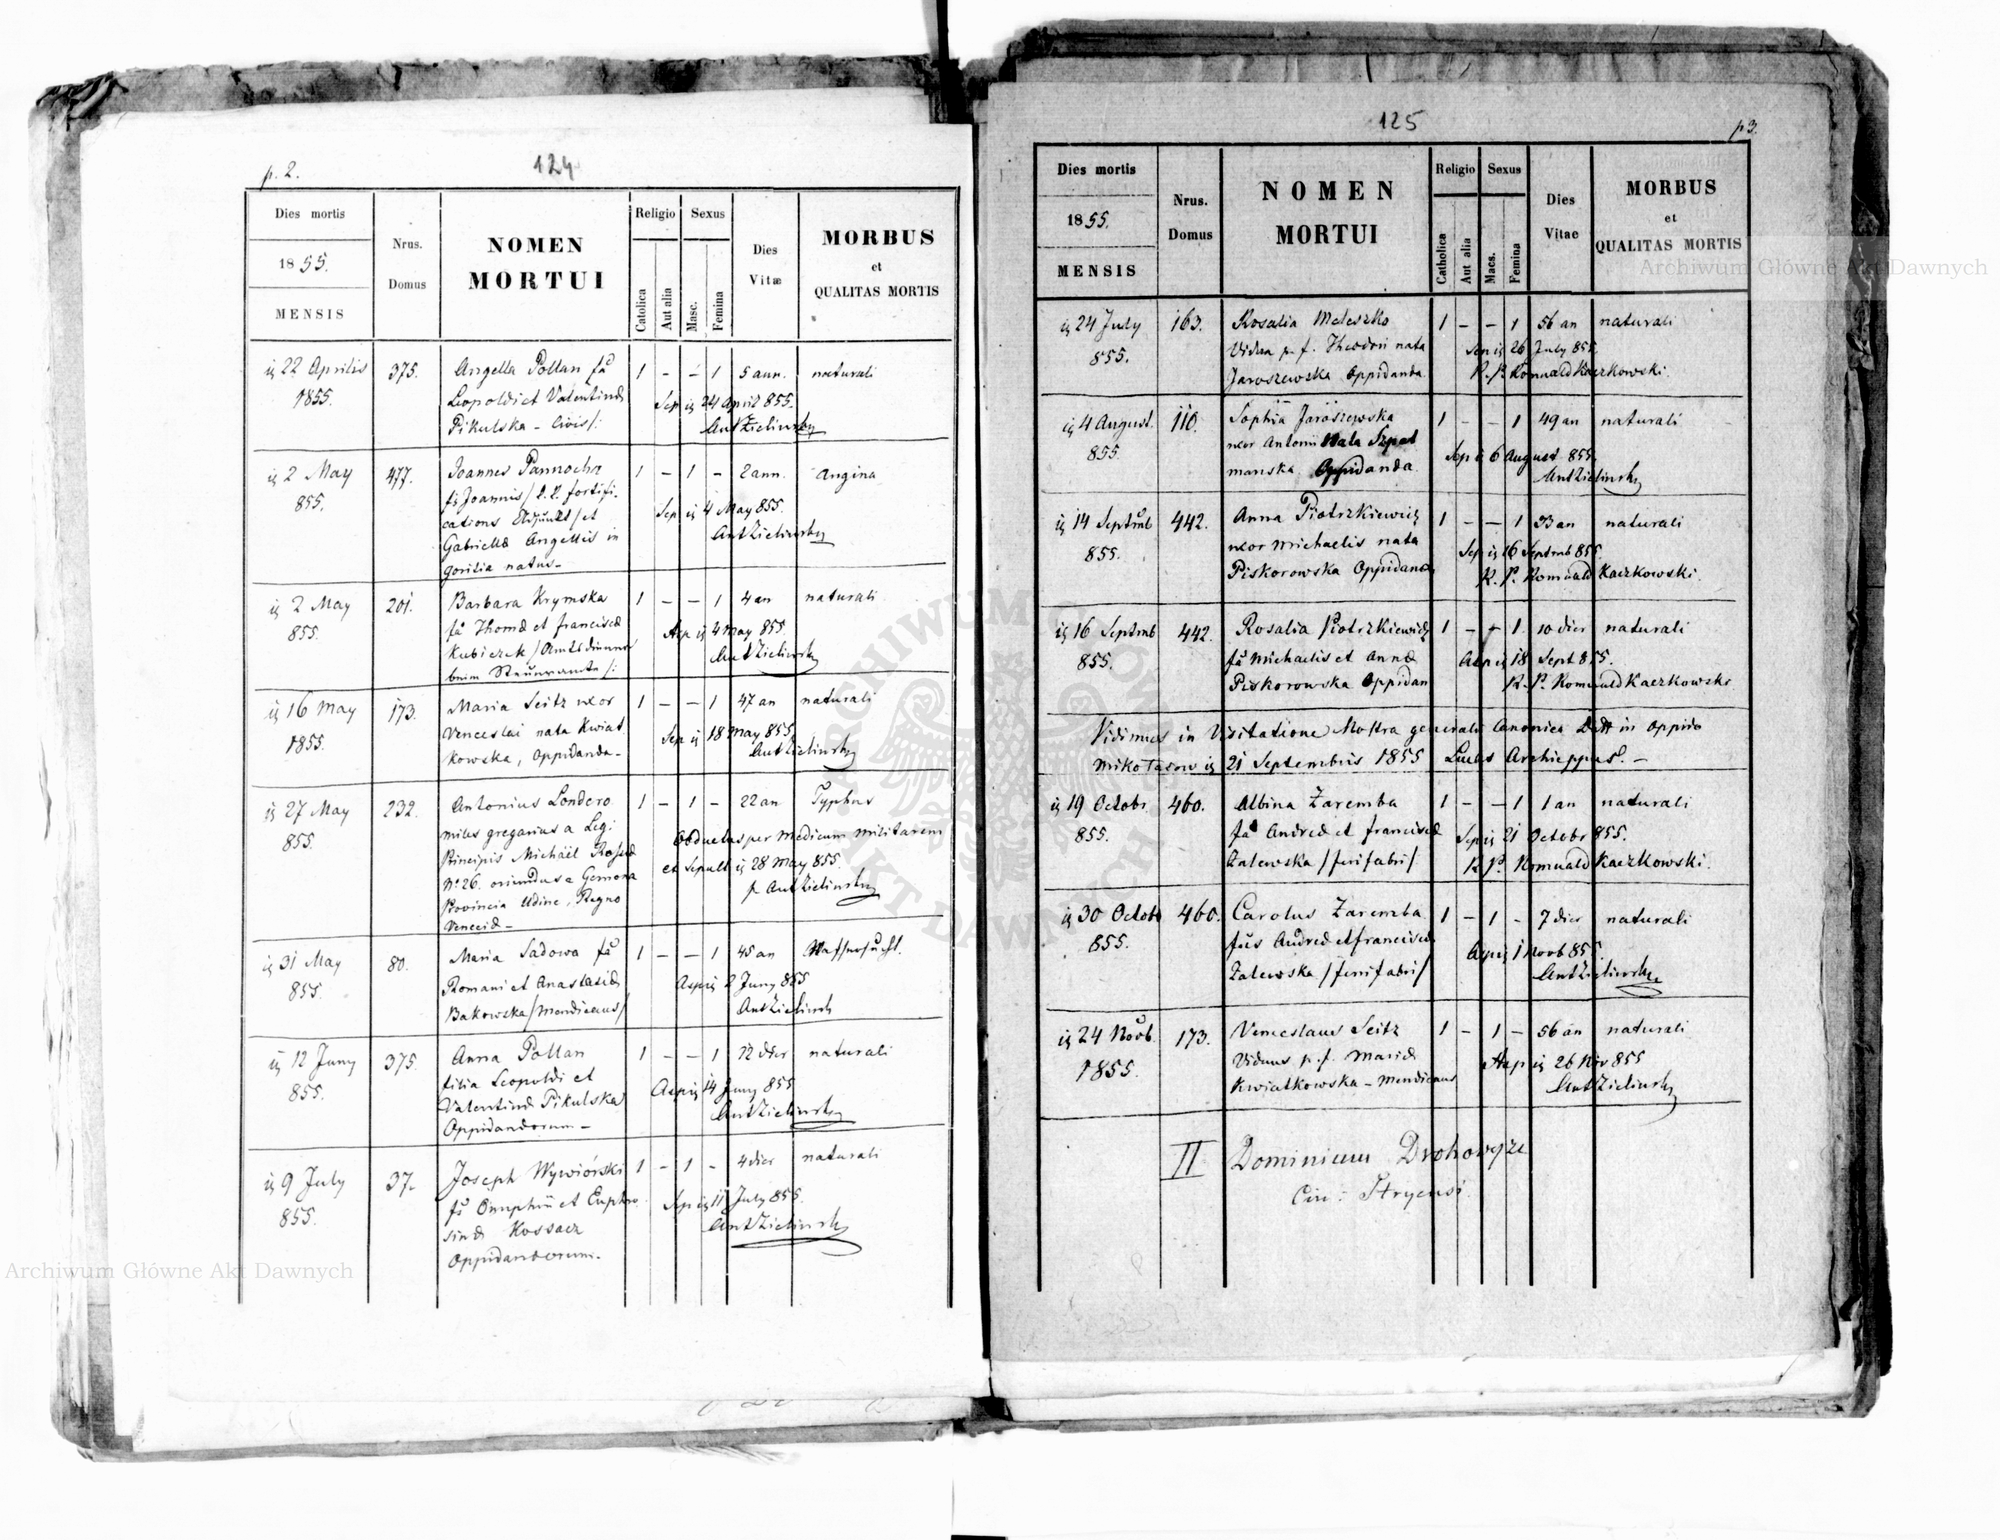 p. 2.
124
Dies mortis
1855.
MENSIS
Nrus.
Domus
NOMEN
MORTUI
Religio
Sexus
Catolica
Aut alia
Masc.
Femina
Dies
Vitæ
MORBUS
et
QUALITAS MORTIS
22 Aprilis 375. Angella Pollan fa 1 – – 1 5 ann. naturali
1855. Leopoldi et Valentinæ Sep 24 April 855.
Pikulska – Civis/: AntZielinsky
2 May 477. Joannes Pannocha 1 – 1 – 2 ann. Angina
855. fs Joannis / fortifi-
cations et Sep 4 May 855.
Gabriellæ Angellis in AntZielinsky
goritia natus –
2 May 201. Barbara Krymska 1 – – 1 4 an naturali
855. fa Thomæ et francisca 4 May 855.
Kubiczek / AntZielinsky
beim
16 May 173. Maria Seitz uxor 1 – – 1 47 an naturali
1855. Venceslai nata Kwiat Sep 18 May 855
kowska, Oppidanda – AntZielinsky
27 May 232. Antonius Londero 1 – 1 – 22 an Typhus
855. miles gregarius a Legi Obductus per Medicum militarem
Principis Michael et Sepult 28 May 855.
No 26. oriundus e Gemona p. AntZielinsky
Provincia Udine, Regno
31 May 80. Maria Sadowa fa 1 – – 1 45 an Wassersucht.
855. Romani et Anastasiæ 2 Juny 855
Bakowska / mendicans / AntZielinsky
12 Juny 375. Anna Pollan 1 – – 1 12 dier naturali
855. filia Leopoldi et 14 Juny 855
Valentinæ Pikulska AntZielinsky
Oppidandorum –
9 July 37. Joseph Wywiórski 1 – 1 – 4 dier naturali
855. fs et Euphro Sep 11 July 855.
sinæ Kossacz AntZielinsky
Oppidandorum.
125
p 3.
Dies mortis
1855.
MENSIS
Nrus.
Domus
NOMEN
MORTUI
Religio
Sexus
Catholica
Aut alia
Macs.
Femina
Dies
Vitae
MORBUS
et
QUALITAS MORTIS
24 July 163. Rosalia Meleszko 1 – – 1 56 an naturali
855. Vidua p. f. Theodori nata Sep 26 July 855.
Jaroszewska Oppidanda R. P. Romuald Kaczkowski
4 August. 110. Sophia Jaroszewska 1 – – 1 49 an naturali
855. uxor Antonii Nata Szpet Sep 6 August 855.
manska Oppidanda AntZielinsky
14 Septmb 442. Anna Piotrzkiewicz 1 – – 1 33 an naturali
855. uxor Michaelis nata Sep 16 Septmb 855
Piskorowska Oppidand R. P. Romuald Kaczkowski
16 Septmb 442. Rosalia Piotrzkiewicz 1 – – 1 10 dier naturali
855. fa Michaelis et Annæ 18 Sept 855.
Piskorowska Oppidan R. P. Romuald Kaczkowski
Vidimus in Visitatione Nostra generali Canonica in Oppido
Mikołajow 21 Septembris 1855 Lucas Archieppus. –
19 Octobr 460. Albina Zaremba 1 – – 1 1 an naturali
855. fa Andreæ et francisca Sep 21 Octobr 855.
Zalewska / ferifabri / R. P. Romuald Kaczkowski.
30 Octob 460. Carolus Zaremba 1 – 1 – 7 dier naturali
855. filius Andreæ et francisca 1 Novb 855.
Zalewska / ferrifabri / AntZielinsky
24 Novb. 173. Venceslaus Seitz 1 – 1 – 56 an naturali
1855. Viduus p. f. Mariæ 26 Nov 855
Kwiatkowska – mendicans AntZielinsky
II Dominium Drohowyze
Stryensi
Archiwum Główne Akt Dawnych
Archiwum Główne Akt Dawnych
ARCHIWUM GŁÓWNE AKT DAWNYCH